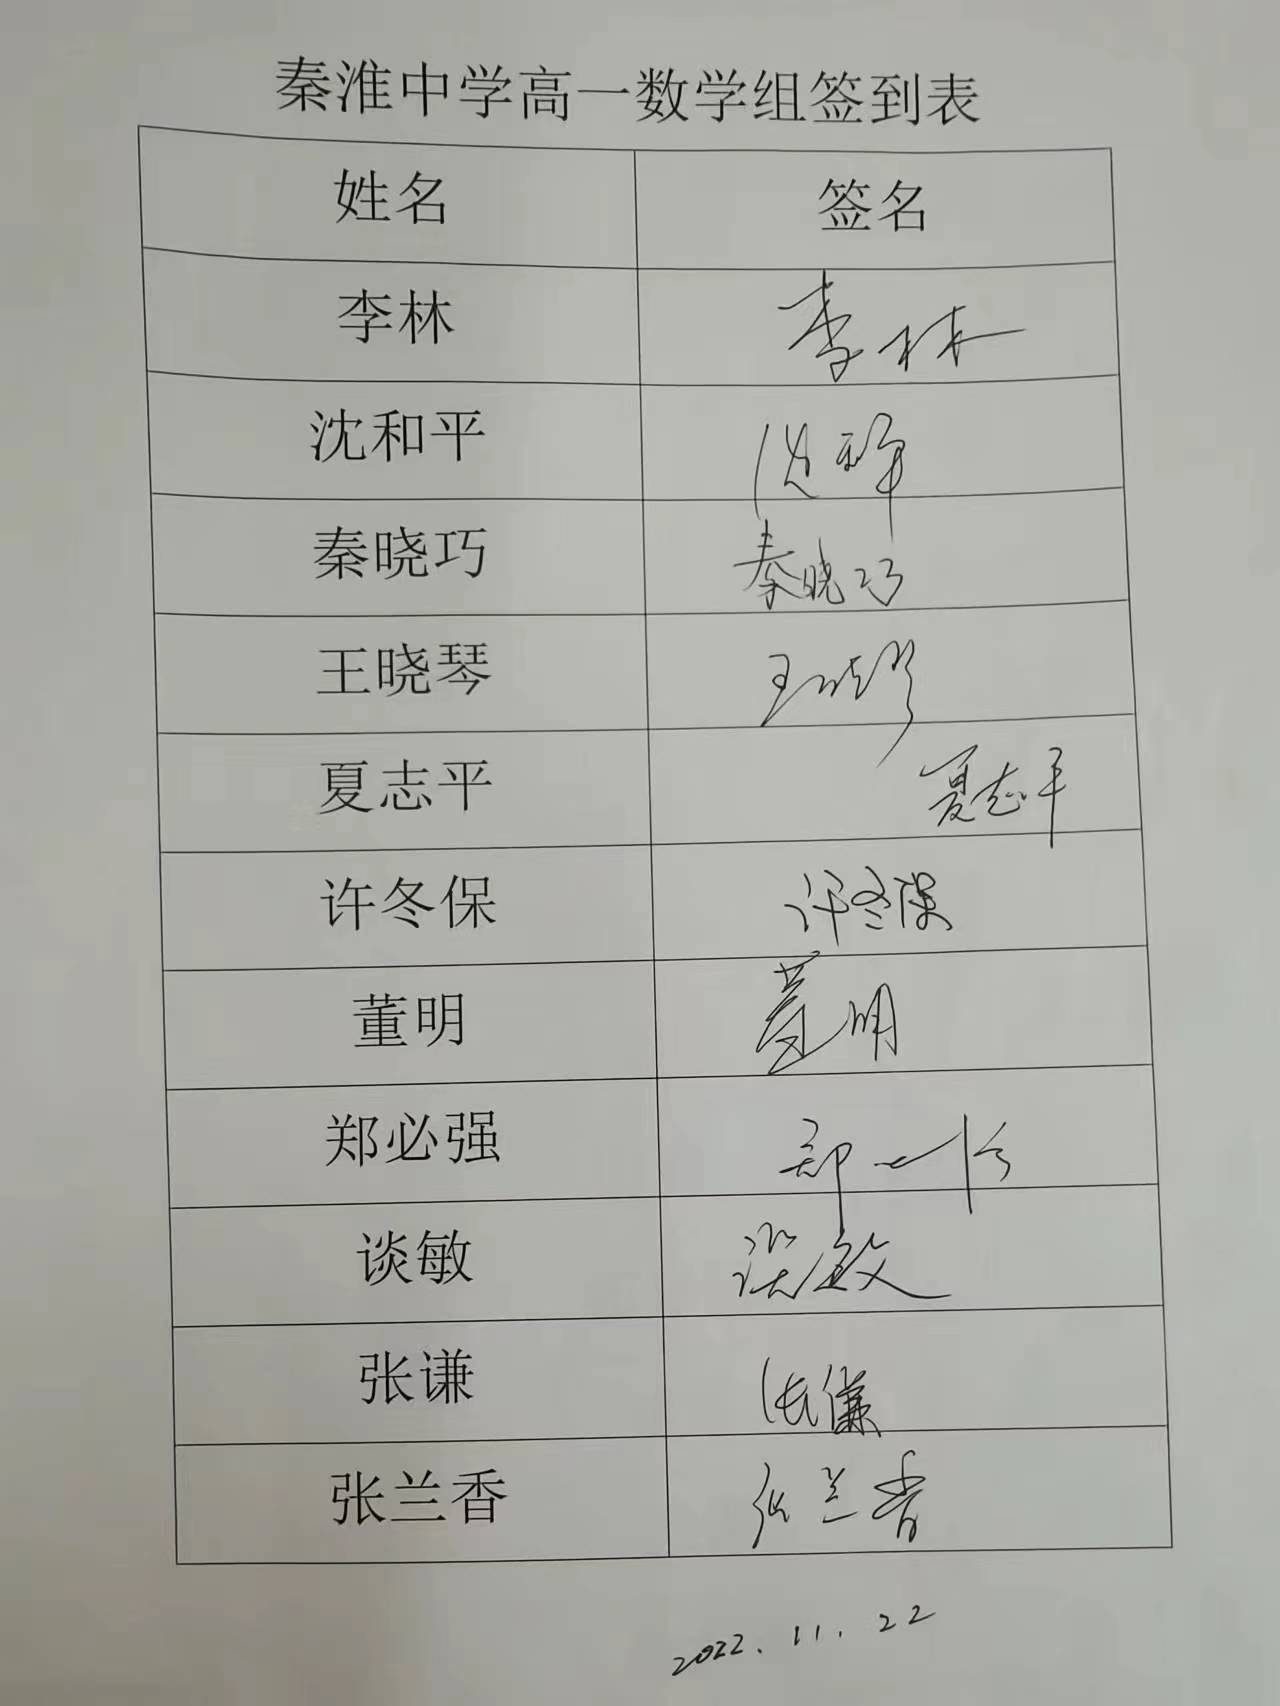 秦淮中学高一数学组签到表
姓名 签名
李林 李林
沈和平 沈和平
秦晓巧 秦晓巧
王晓琴 王晓琴
夏志平 夏志平
许冬保 许冬保
董明 董明
郑必强 郑必强
谈敏 谈敏
张谦 张谦
张兰香 张兰香
2022.11.22